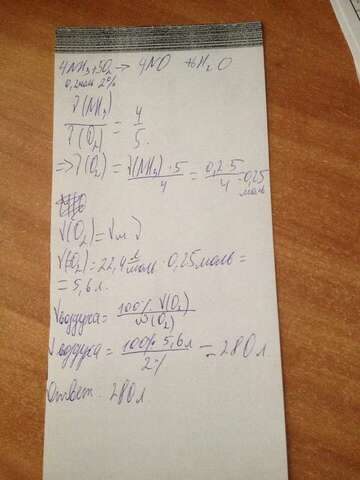 4NH₃+5O₂→ 4NO +6H₂O
0,2моль 2%
ν(NH₃)/ν(O₂) = 4/5
⇒ν(O₂) = ν(NH₃)·5/4 = 0,2·5/4 = 0,25 моль
V(O₂)=Vм ν
V(O₂)=22,4 л/моль · 0,25моль =
= 5,6 л.
Vвоздуха= 100% V(O₂)/ω(O₂)
Vвоздуха= 100% 5,6л/2% = 280 л.
Ответ: 280л.